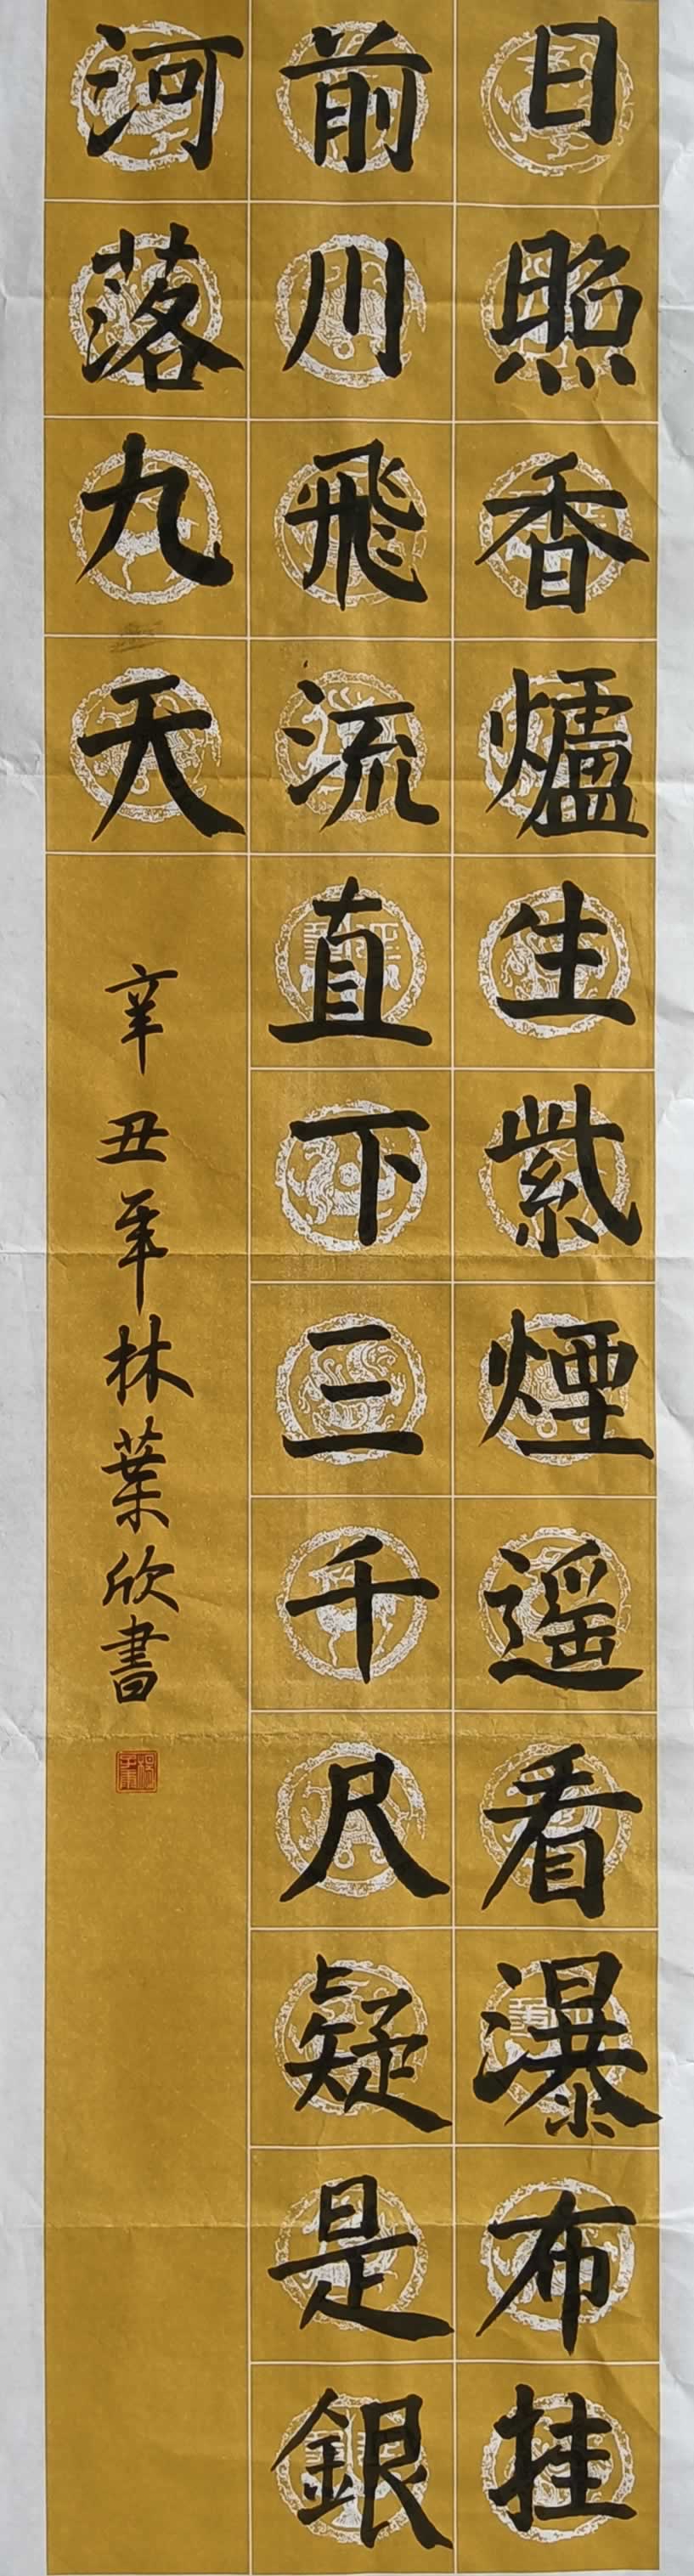 日照香爐生紫煙遥看瀑布挂
前川飛流直下三千尺疑是銀
河落九天
辛丑年林葉欣書